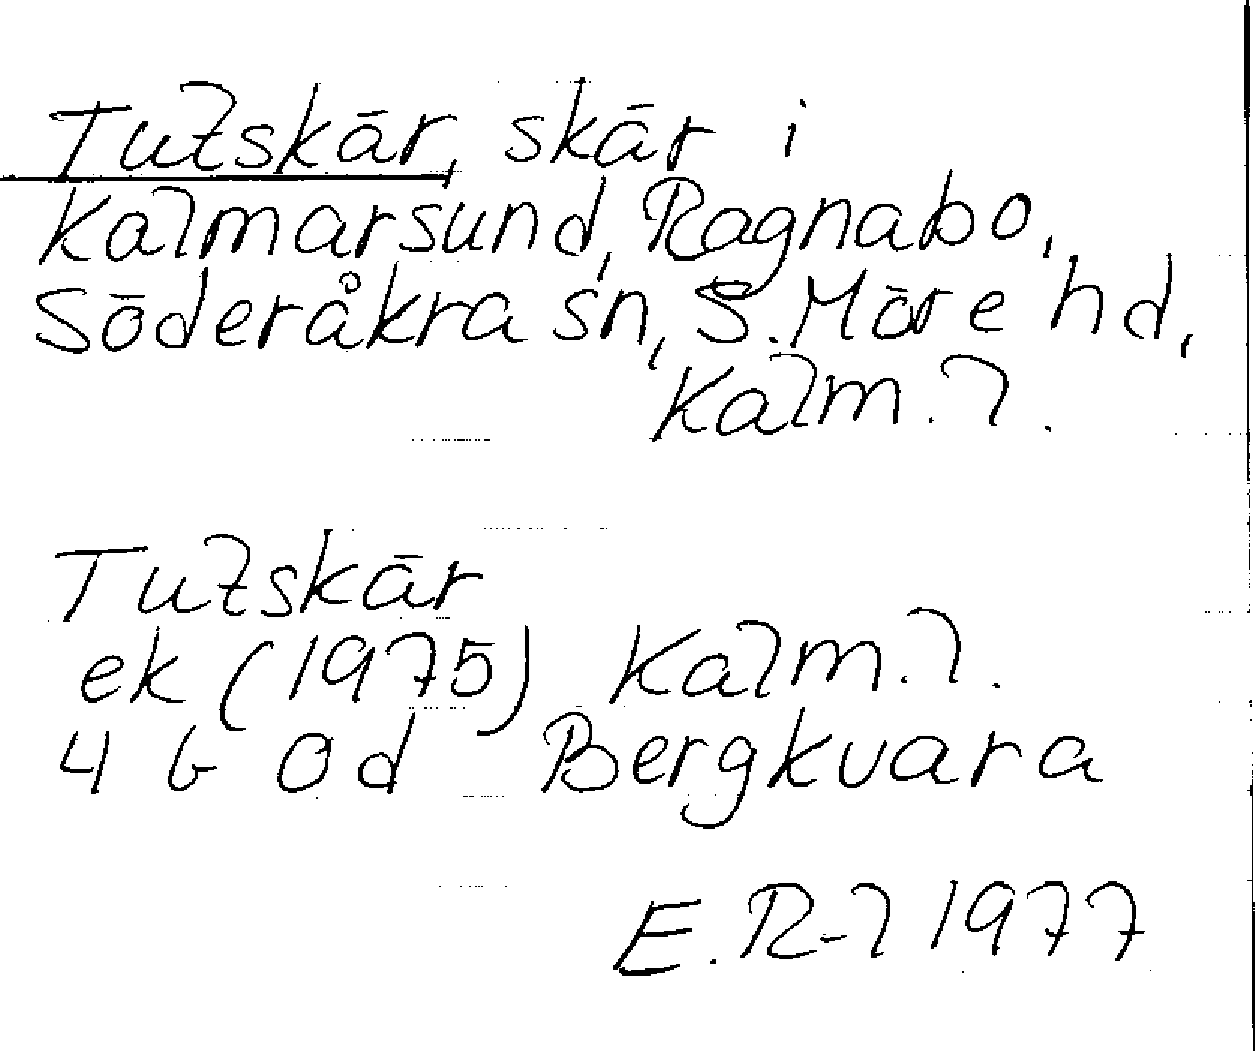 Tutskär, skär i
Kalmarsund, Ragnabo,
Söderåkra sn, S. Möre hd,
Kalm. l.
Tutskär
ek (1975) Kalm. l.
4 G 0d Bergkvara
E. R-l 1977